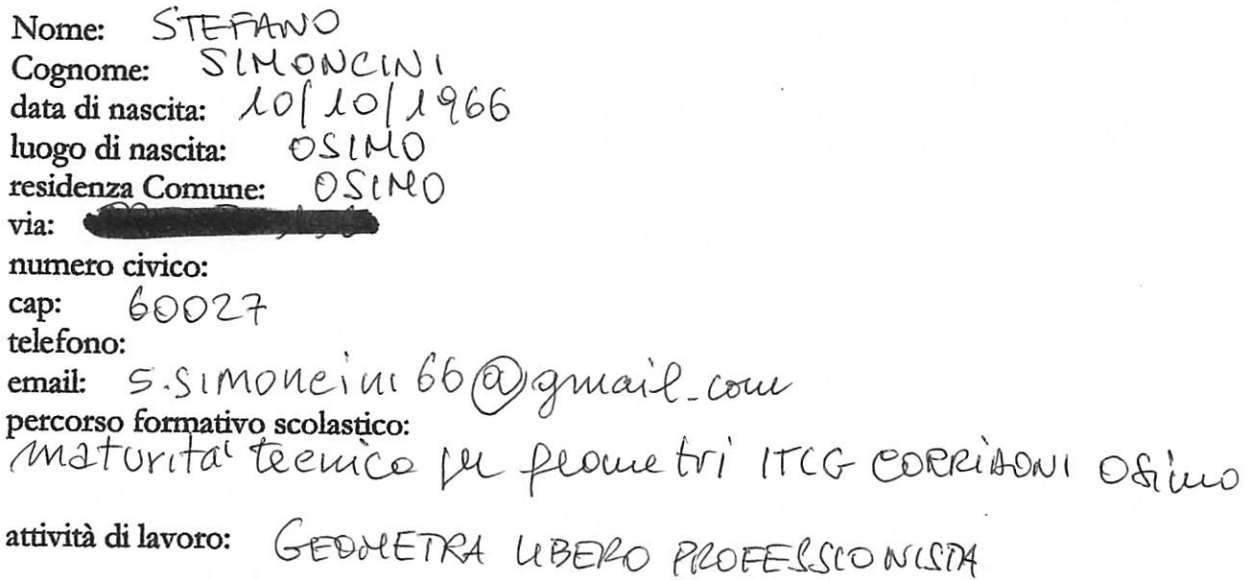 Nome: STEFANO
Cognome: SIMONCINI
data di nascita: 10/10/1966
luogo di nascita: OSIMO
residenza Comune: OSIMO
via:
numero civico:
cap: 60027
telefono:
email: s.simoncini66@gmail.com
percorso formativo scolastico:
maturita' tecnico per geometri ITCG CORRIDONI Osimo
attività di lavoro: GEOMETRA LIBERO PROFESSIONISTA